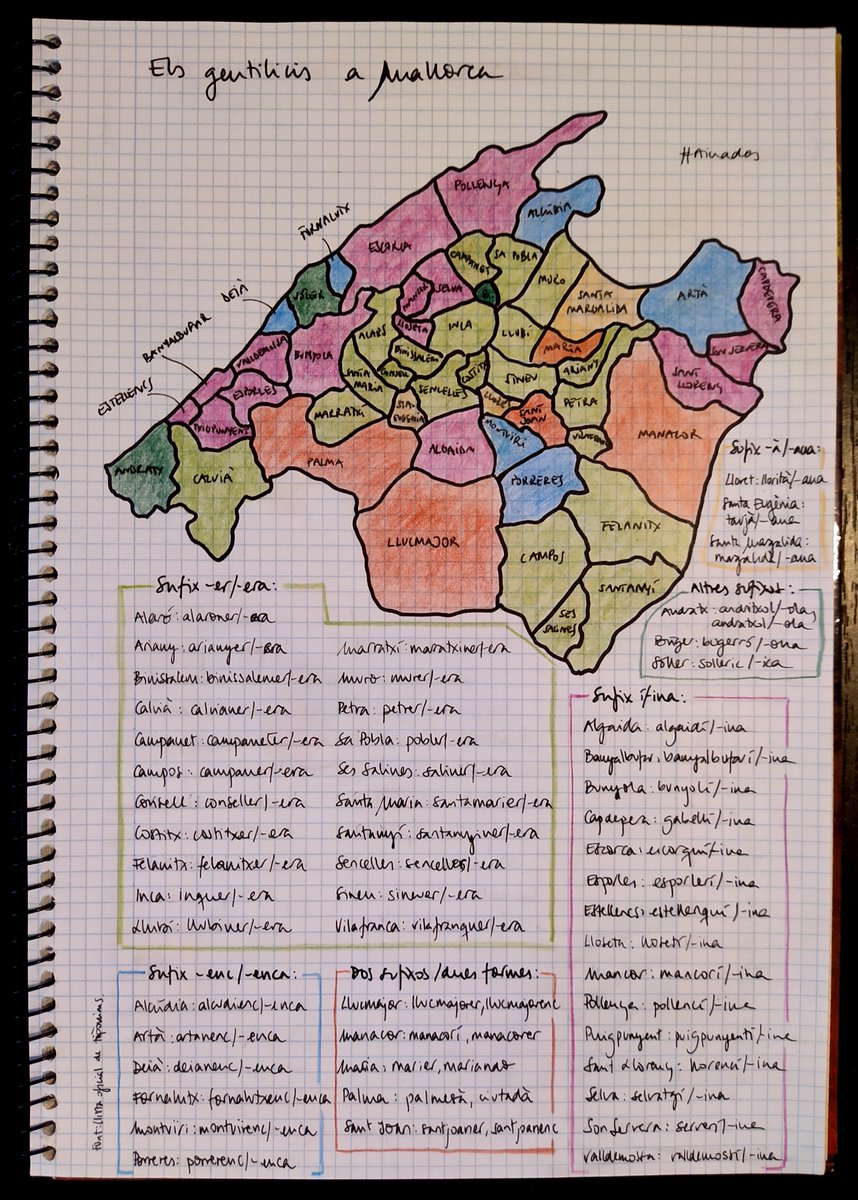 Els gentilicis a Mallorca
#Ainados
POLLENÇA
ALCÚDIA
FORNALUTX
ESCORCA
CAMPANET
SA POBLA
MURO
SANTA MARGALIDA
ARTÀ
CAPDEPERA
SÓLLER
DEIÀ
MANCOR
SELVA
BANYALBUFAR
ESTELLENCS
VALLDEMOSSA
BUNYOLA
ALARÓ
LLOSETA
INCA
LLUBÍ
MARIA
SON SERVERA
SANT LLORENÇ
BINISSALEM
CONSELL
COSTITX
SINEU
ARIANY
ESPORLES
SANTA MARIA
SENCELLES
LLORET
PETRA
PUIGPUNYENT
MARRATXÍ
STA. EUGÈNIA
SANT JOAN
MANACOR
ANDRATX
CALVIÀ
PALMA
ALGAIDA
MONTUÏRI
VILAFRANCA
PORRERES
LLUCMAJOR
FELANITX
CAMPOS
SANTANYÍ
SES SALINES
Sufix -à/-ana:
Lloret: llorità/-ana
Santa Eugènia:
taujà/-ana
Santa Margalida:
margalidà/-ana
Altres sufixos:
Andratx: andritxol/-ola,
andratxol/-ola
Búger: bugerró/-ona
Sóller: solleric/-ica
Sufix -er/-era:
Alaró: alaroner/-era
Ariany: arianyer/-era
Binissalem: binissalemer/-era
Calvià: calvianer/-era
Campanet: campaneter/-era
Campos: campaner/-era
Consell: conseller/-era
Costitx: costitxer/-era
Felanitx: felanitxer/-era
Inca: inquer/-era
Llubí: llubiner/-era
Marratxí: marratxiner/-era
Muro: murer/-era
Petra: petrer/-era
Sa Pobla: pobler/-era
Ses Salines: saliner/-era
Santa Maria: santamarier/-era
Santanyí: santanyiner/-era
Sencelles: senceller/-era
Sineu: sineuer/-era
Vilafranca: vilafranquer/-era
Sufix í/ina:
Algaida: algaidí/-ina
Banyalbufar: banyalbufarí/-ina
Bunyola: bunyolí/-ina
Capdepera: gabellí/-ina
Escorca: escorquí/-ina
Esporles: esporlerí/-ina
Estellencs: estellenquí/-ina
Lloseta: llosetí/-ina
Mancor: mancorí/-ina
Pollença: pollencí/-ina
Puigpunyent: puigpunyentí/-ina
Sant Llorenç: llorencí/-ina
Selva: selvatgí/-ina
Son Servera: serverí/-ina
Valldemossa: valldemossí/-ina
Sufix -enc/-enca:
Alcúdia: alcudienc/-enca
Artà: artanenc/-enca
Deià: deianenc/-enca
Fornalutx: fornalutxenc/-enca
Montuïri: montuïrenc/-enca
Porreres: porrerenc/-enca
Dos sufixos/dues formes:
Llucmajor: llucmajorer, llucmajorenc
Manacor: manacorí, manacorer
Maria: marier, mariando
Palma: palmesà, ciutadà
Sant Joan: santjoaner, santjoanenc
Font: llista oficial de topònims.